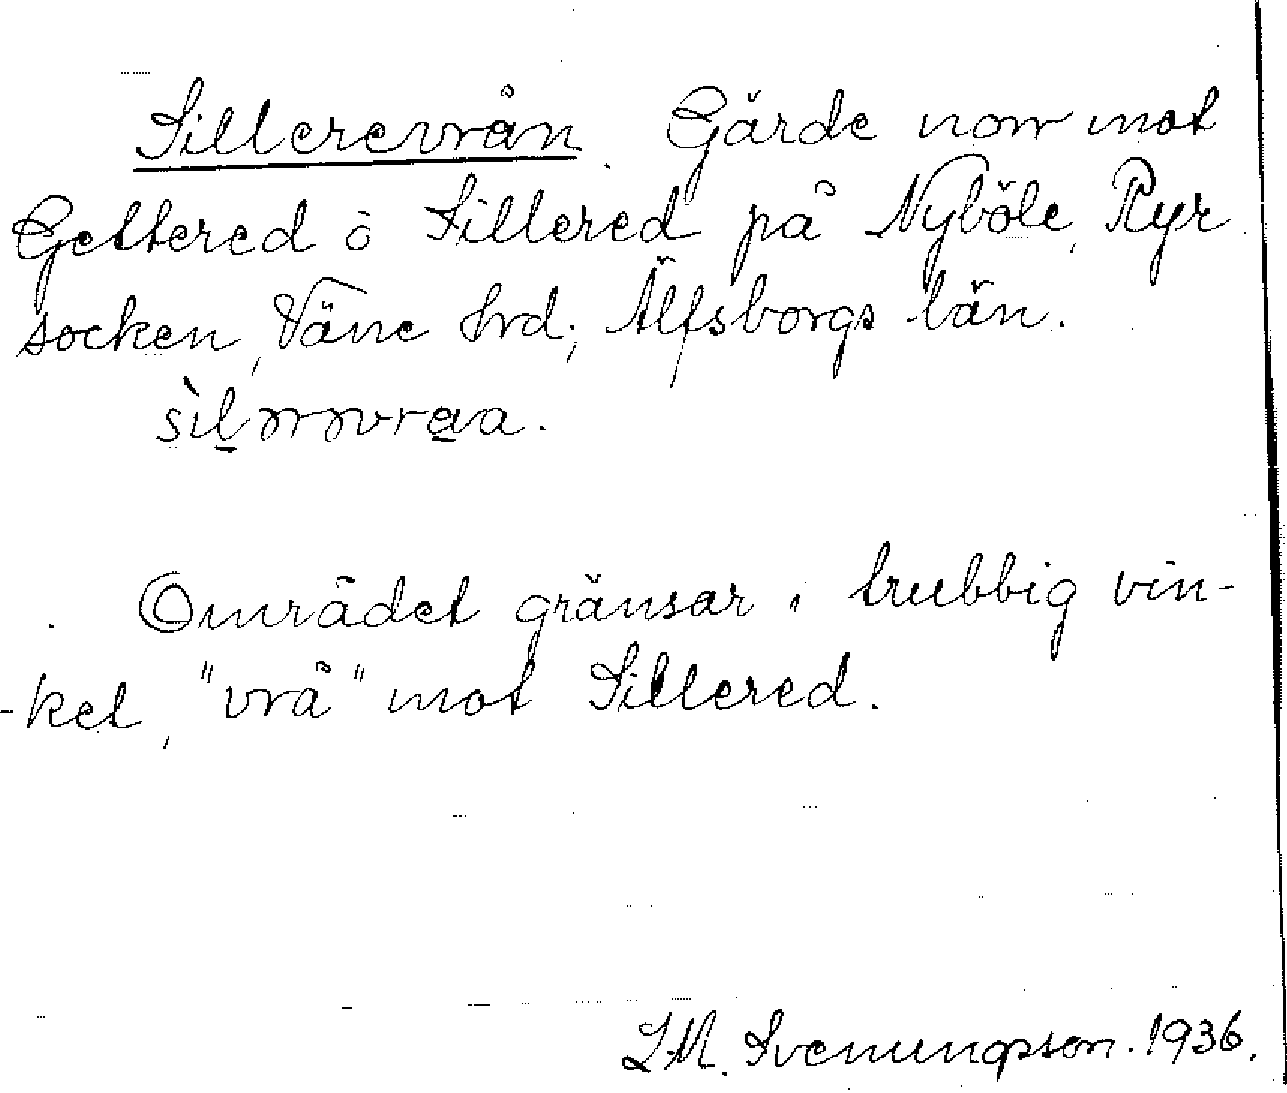 Sillerevrån. Gärde norr mot
Gettered o Sillered på Nyböle, Ryr
socken, Väne hrd; Älfsborgs län.
Området gränsar i trubbig vin-
-kel, "vrå" mot Sillered.
I M. Svenungsson. 1936.